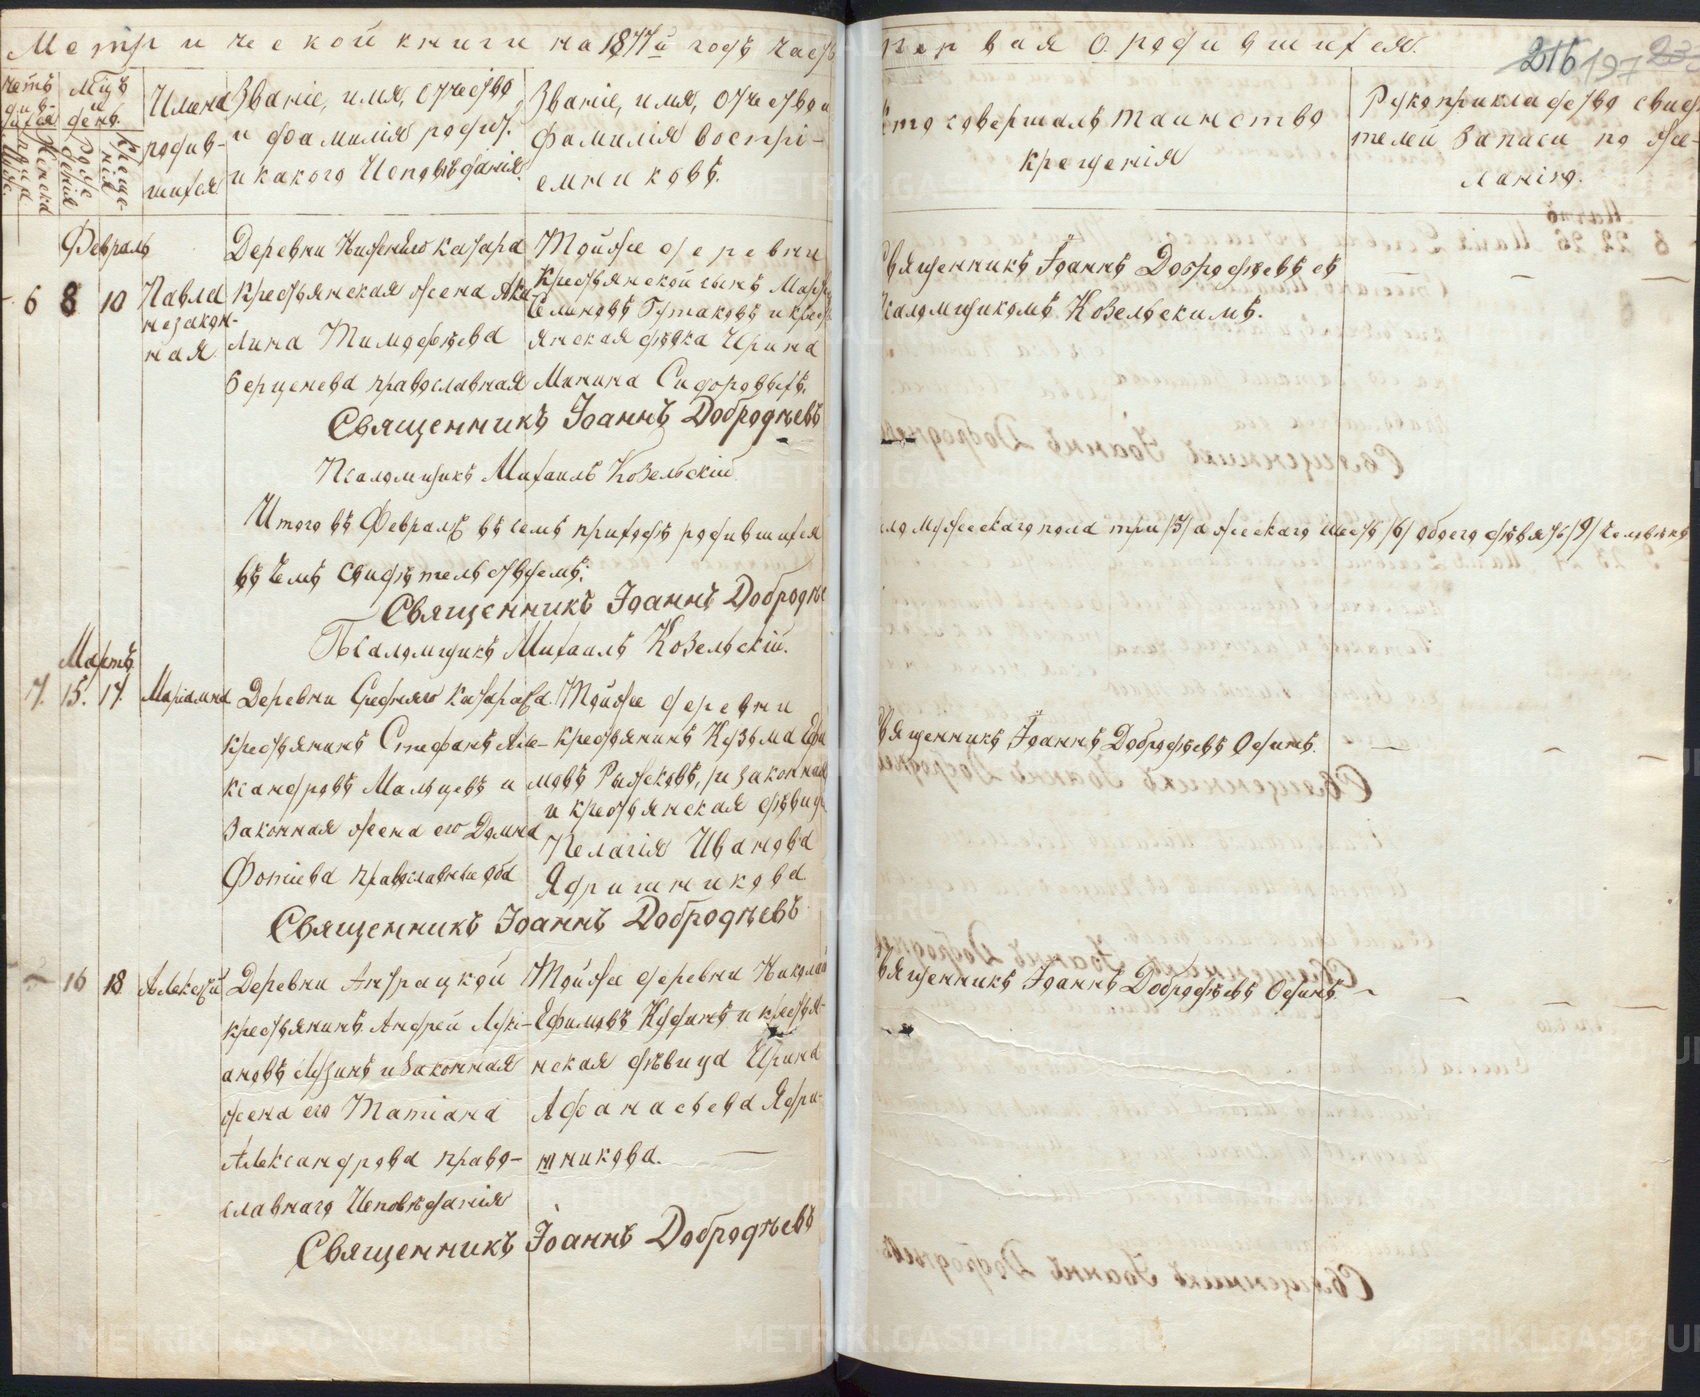 Метрической книги на 1877й годъ часть первая о родившихся.
216 197
Счетъ родив-шихся
Мцъ и день
Имена родив-шихся
Званіе, имя, отчество и фамилія родит. и какого исповѣданія
Званіе, имя, отчество и фамилія воспрі-емниковъ.
Кто совершалъ таинство крещенія
Рукоприкладство свидѣ-телей записи по же-ланію.
Мужска
Женска
Рожденія
Креще-нія
Февраль
6 8 10
Павла незакон-ная
Деревни Нижняго Катара
крестьянская жена Аку-
лина Тимофѣева
Берценева православная
Тойже деревни
крестьянской сынъ
и кресть-
янская дѣвка Ирина
Минина Сидоровыхъ.
Священникъ Іоаннъ Добродѣевъ съ
псаломщикомъ Козельскимъ.
Священникъ Іоаннъ Добродѣевъ
Псаломщикъ Михаилъ Козельскій
Итого въ Февралѣ въ семъ приходѣ родившихся
мужескаго пола три /3/ а женскаго шесть /6/ обоего девять /9/ человѣкъ
въ чемъ свидѣтельствуемъ:
Священникъ Іоаннъ Добродѣе
Псаломщикъ Михаилъ Козельскій.
Мартъ
7. 15. 17.
Маріамна
Деревни Средняго Катара
крестьянинъ Стефанъ Але-
ксандровъ Мальцевъ и
законная жена его Домна
Фотіева православные оба
Тойже деревни
крестьянинъ Козьма Ефи
мовъ Рыжковъ,
и крестьянская дѣвица
Пелагія Иванова
Ядришникова
Священникъ Іоаннъ Добродѣевъ Один.
Священникъ Іоаннъ Добродѣевъ
16 18
Алексѣй
Деревни
крестьянинъ Андрей Луки-
ановъ и законная
жена его Татіана
Александрова право-
славнаго исповѣданія
Тойже деревни Николай
Ефимовъ и крестья-
нская дѣвица Ирина
Афанасьева Ядри-
шникова.
Священникъ Іоаннъ Добродѣевъ Одинъ
Священникъ Іоаннъ Добродѣевъ
METRIKI.GASO-URAL.RU